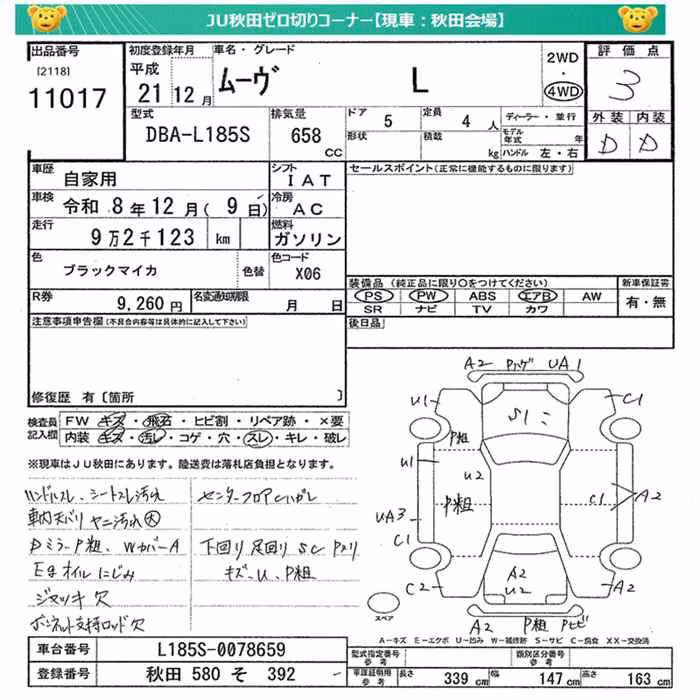 JU秋田ゼロ切りコーナー【現車：秋田会場】
出品番号
[2118]
11017
初度登録年月
平成
21 12月
車名・グレード
ムーヴ L
2WD
・
4WD
評価点
3
外装 内装
D D
型式
DBA-L185S
排気量
658
CC
ドア 5 定員 4 人
形状 積載 kg
ディーラー・並行
モデル年式 年
ハンドル 左・右
車歴 自家用
シフト IAT
車検 令和 8年12月( 9日)
冷房 AC
走行 9万2千123 km
燃料 ガソリン
色 ブラックマイカ 色替
色コード X06
R券 9,260円
名変通知期限 月 日
セールスポイント(正常に機能するものに限ります)
装備品 (純正品に限り○をつけてください)
PS PW ABS エアB AW
SR ナビ TV カワ
新車保証書
有・無
後日品
注意事項申告欄(不具合内容等は具体的に記入して下さい)
修復歴 有〔箇所 〕
検査員記入欄
FW キズ・飛石・ヒビ割・リペア跡・×要
内装 キズ・汚レ・コゲ・穴・スレ・キレ・破レ
※現車はJU秋田にあります。陸送費は落札店負担となります。
ハンドルスレ、シートスレ汚れ
車内天バリ ヤニ汚れ大
Dミラー P粗、WカバーA
Egオイルにじみ
ジャッキ欠
ボンネット支持ロッド欠
センターフロアCハガレ
下回り 足回り SC Pヌリ
キズ-U、P粗
A2 UA1
U1 C1
S1
P粗
U1
U2
P粗
C1
A2
UA3
C1
A2
U2
C2
A2
A2 P粗 Pヒビ
スペア
A-キズ E-エクボ U-凹み W-補修跡 S-サビ C-腐食 XX-交換済
車台番号 L185S-0078659
登録番号 秋田 580 そ 392
型式指定番号
参考
類別区分番号
参考
車庫証明用
参考
長さ 339 cm 幅 147 cm 高さ 163 cm